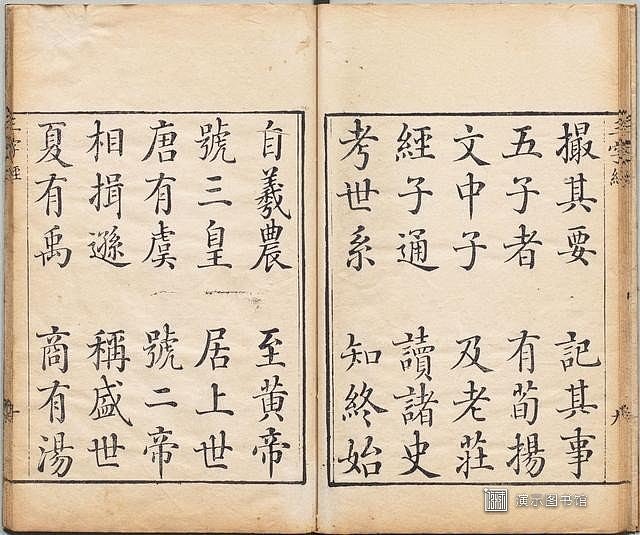 撮其要 記其事
五子者 有荀揚
文中子 及老莊
經子通 讀諸史
考世系 知終始
自羲農 至黃帝
號三皇 居上世
唐有虞 號二帝
相揖遜 稱盛世
夏有禹 商有湯
三字經
演示图书馆